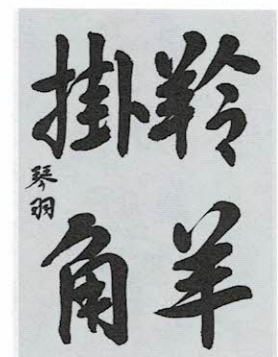 羚羊
掛角
琴羽